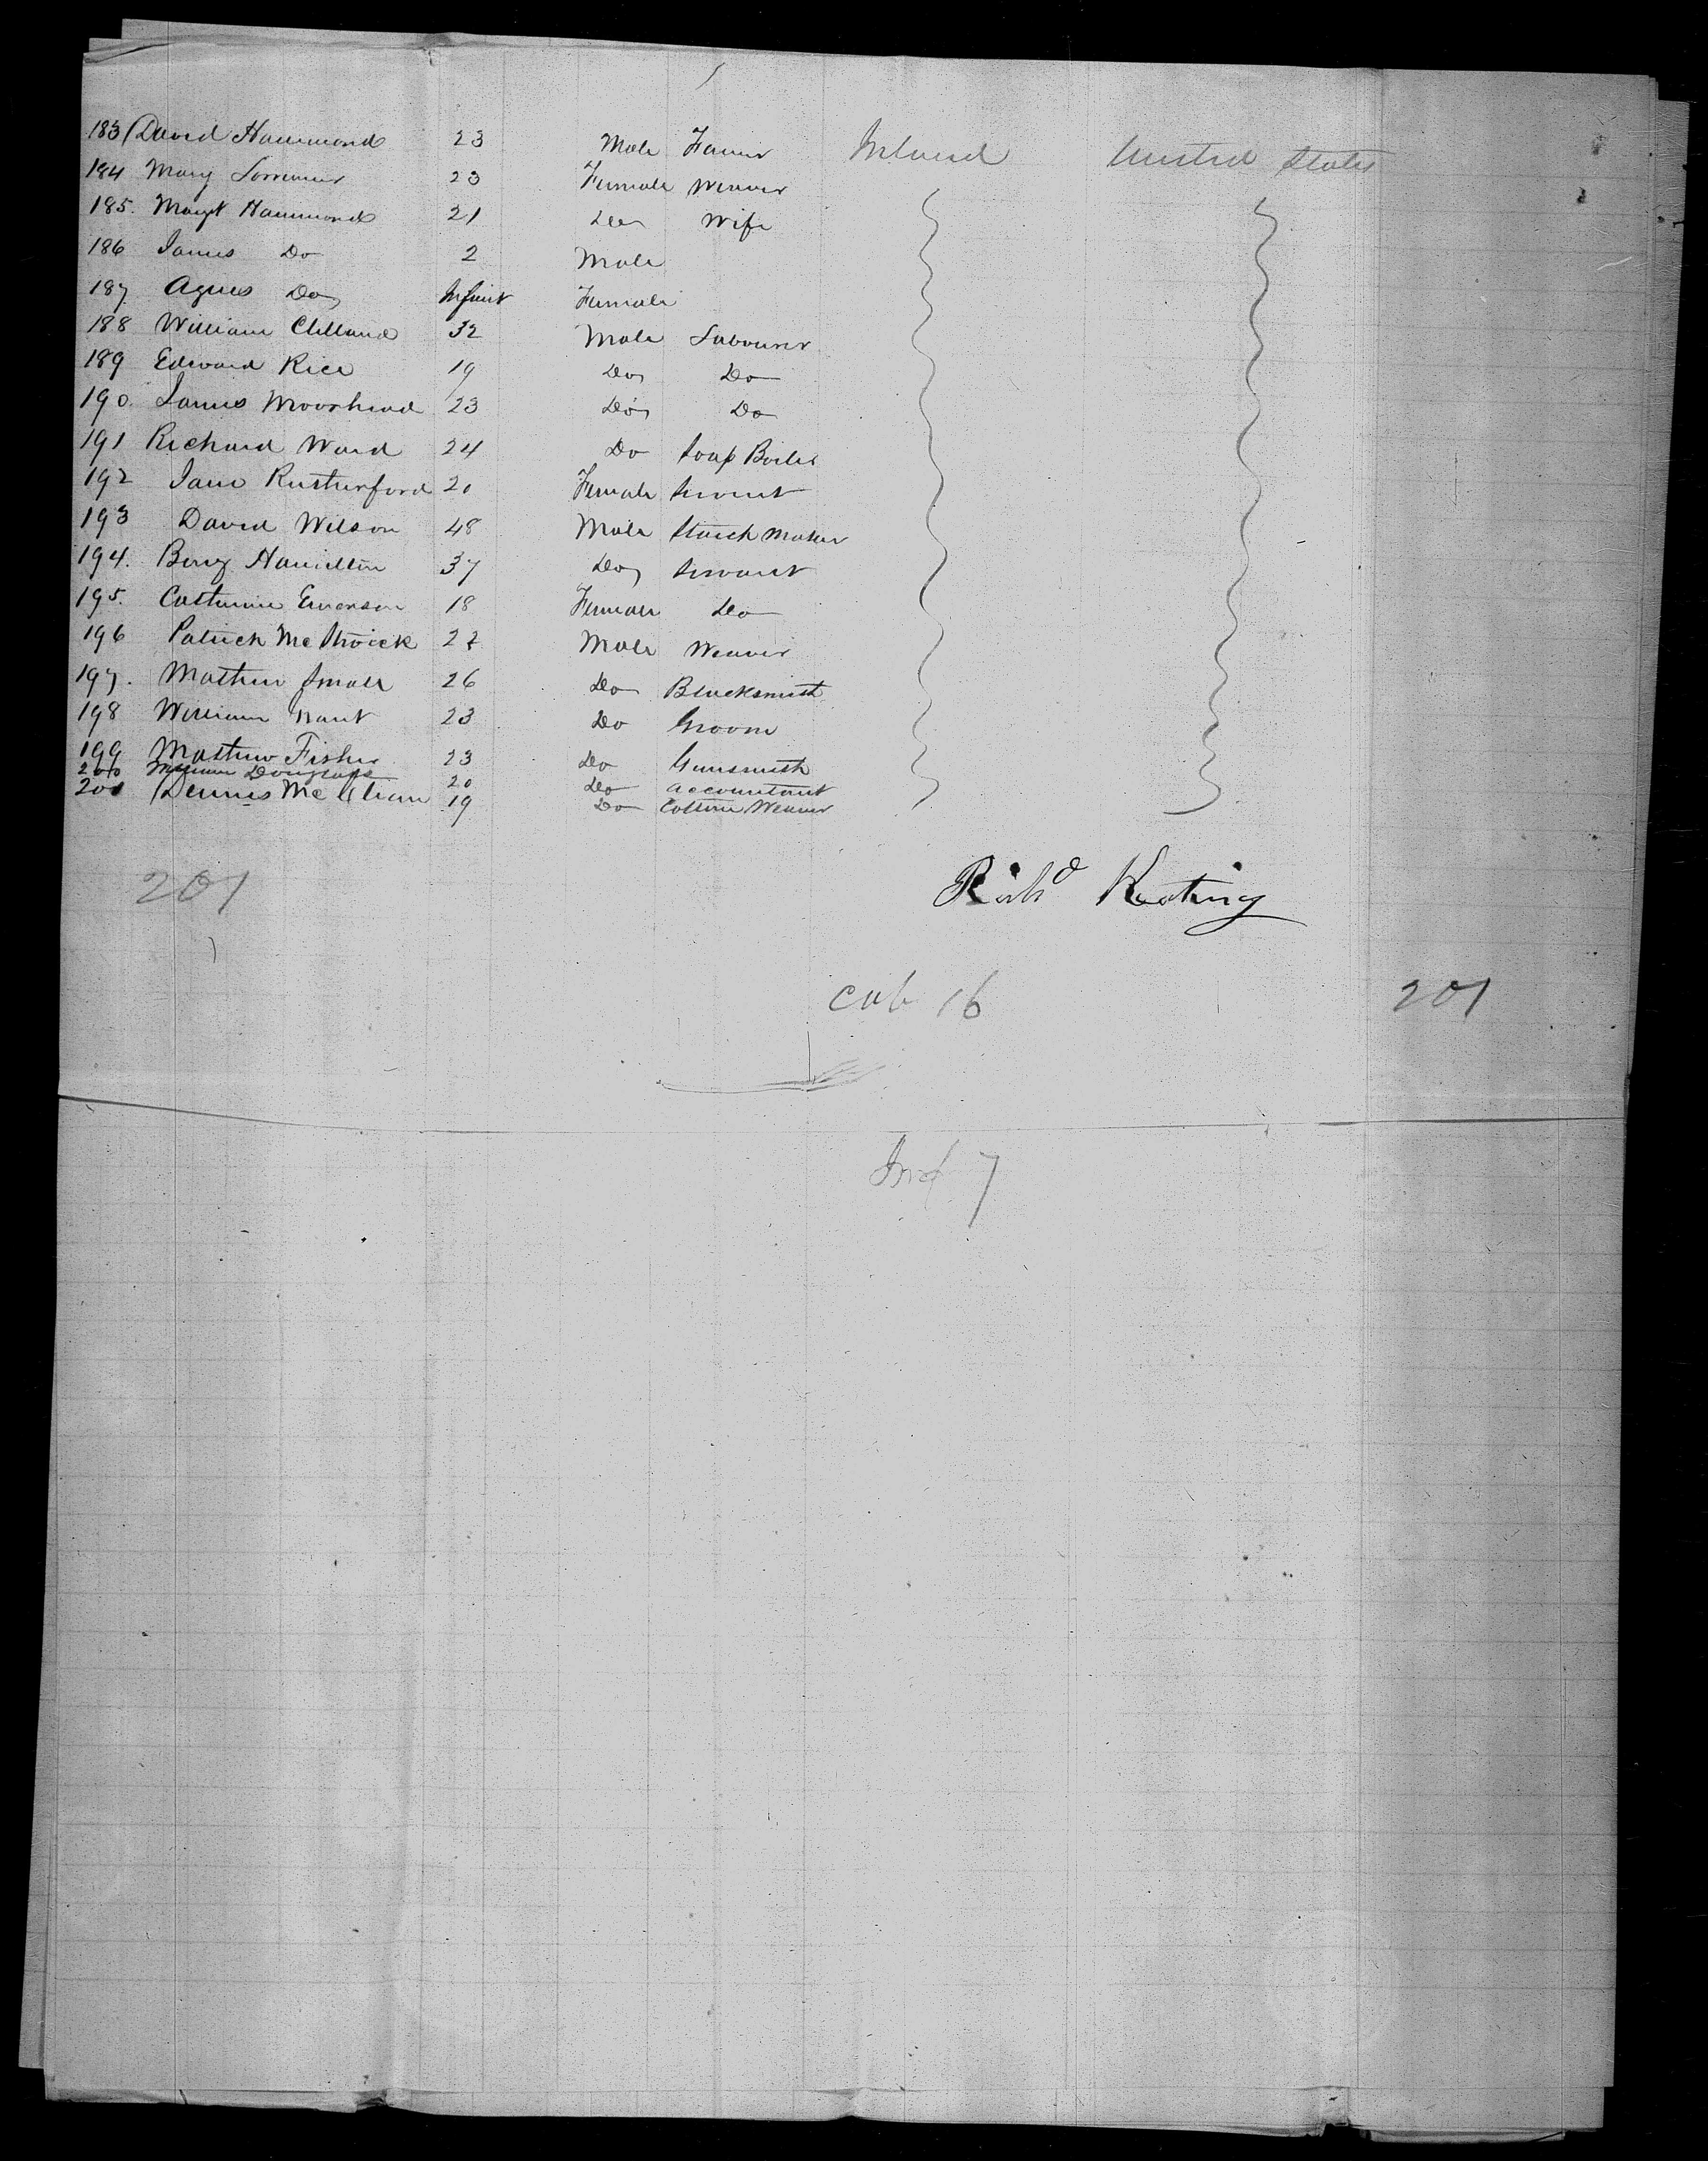 183 David Hammond 23 Male Farmer Ireland United States
184 Mary Lorrimer 23 Female Weaver
185. Margt Hammond 21 Do Wife
186 James Do 2 Male
187. Agnes Do Infant Female
188 William Clelland 32 Male Labourer
189 Edward Rice 19 Do Do
190. James Moorhead 23 Do Do
191 Richard Ward 24 Do Soap Boiler
192 Jane Rutherford 20 Female Servant
193 David Wilson 48 Male Starch Maker
194. Hamilton 37 Do Servant
195. Catherine Emerson 18 Female Do
196 Patrick 22 Male Weaver
197. Mathew Small 26 Do Blacksmith
198 William 23 Do Groom
199 Mathew Fisher 23 Do Gunsmith
200 William Douglass 20 Do Accountant
201 Dennis 19 Do Cotton Weaver
201
Richd Keating
Cab 16 201
Inf 7